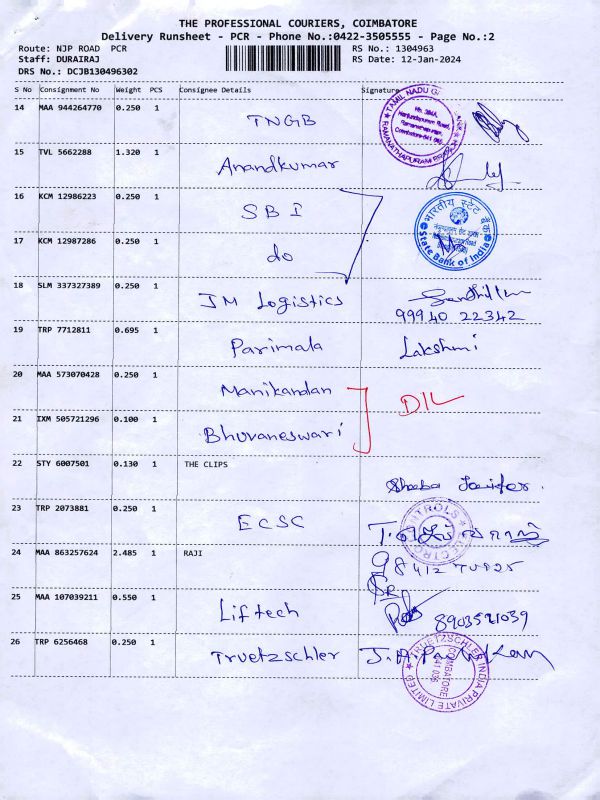 THE PROFESSIONAL COURIERS, COIMBATORE
Delivery Runsheet - PCR - Phone No.:0422-3505555 - Page No.:2
Route: NJP ROAD PCR
RS No.: 1304963
Staff: DURAIRAJ
RS Date: 12-Jan-2024
DRS No.: DCJB130496302
S No Consignment No Weight PCS Consignee Details Signature
14 MAA 944264770 0.250 1 TNGB
15 TVL 5662288 1.320 1 Anandkumar
16 KCM 12986223 0.250 1 SBI
भारतीय स्टेट बैंक
State Bank of India
17 KCM 12987286 0.250 1 do
18 SLM 337327389 0.250 1 JM Logistics
99940 22342
19 TRP 7712811 0.695 1 Parimala Lakshmi
20 MAA 573070428 0.250 1 Manikandan
21 IXM 505721296 0.100 1 Bhuvaneswari
22 STY 6007501 0.130 1 THE CLIPS
23 TRP 2073881 0.250 1 ECSC
24 MAA 863257624 2.485 1 RAJI
25 MAA 107039211 0.550 1 Liftech
26 TRP 6256468 0.250 1 Truetzschler
TRUETZSCHLER INDIA PRIVATE LIMITED
COIMBATORE